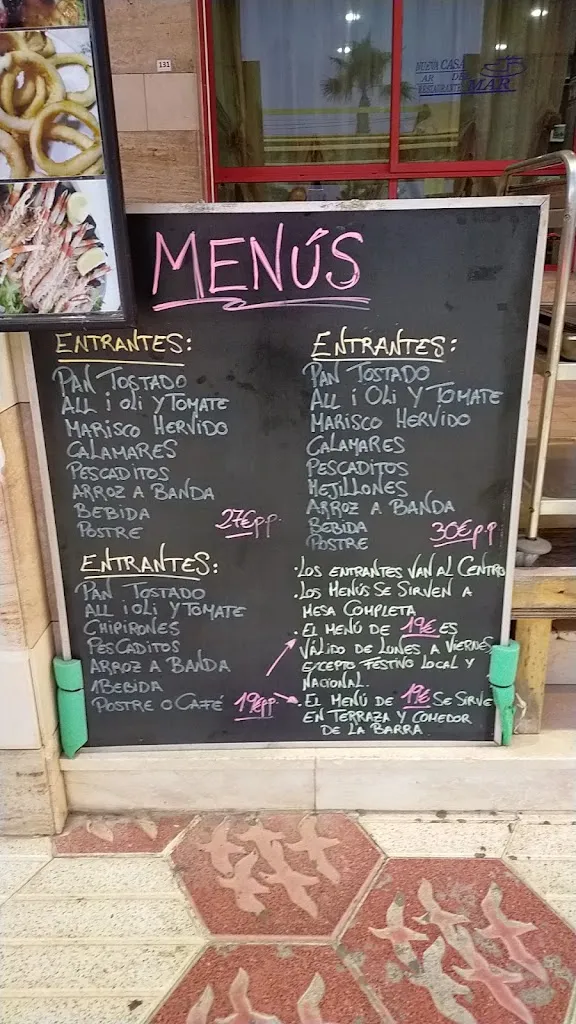 131
NUEVA CASA
BAR DEL
RESTAURANTE MAR
MENÚS
ENTRANTES:
PAN TOSTADO
ALL i OLi Y TOMATE
MARISCO HERVIDO
CALAMARES
PESCADITOS
ARROZ A BANDA
BEBIDA
POSTRE
27€ p.p.
ENTRANTES:
PAN TOSTADO
ALL i OLi Y TOMATE
MARISCO HERVIDO
CALAMARES
PESCADITOS
MEJILLONES
ARROZ A BANDA
BEBIDA
POSTRE
30€ p.p
ENTRANTES:
PAN TOSTADO
ALL i OLi Y TOMATE
CHIPIRONES
PESCADITOS
ARROZ A BANDA
1 BEBIDA
POSTRE O CAFÉ 19€ pp.
· LOS ENTRANTES VAN AL CENTRO
· LOS MENÚS SE SIRVEN A
MESA COMPLETA
· EL MENÚ DE 19€ ES
VÁLIDO DE LUNES A VIERNES
EXCEPTO FESTIVO LOCAL Y
NACIONAL.
· EL MENÚ DE 19€ SE SIRVE
EN TERRAZA Y COMEDOR
DE LA BARRA